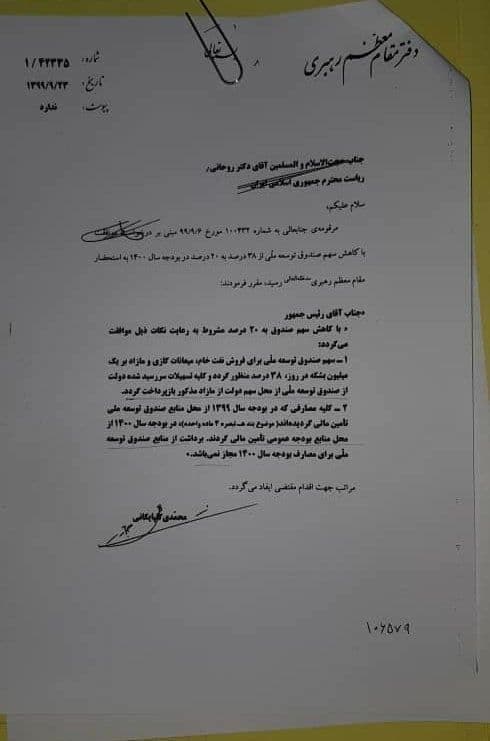 دفتر مقام معظم رهبری
تعالی
شماره: ۱/۴۲۳۳۵
تاریخ: ۱۳۹۹/۹/۲۳
پیوست: ندارد
جناب حجت‌الاسلام و المسلمین آقای دکتر روحانی/
ریاست محترم جمهوری اسلامی ایران
سلام علیکم،
مرقومه‌ی جنابعالی به شماره ۱۰۰۴۳۲ مورخ ۹۹/۹/۶ مبنی بر درخواست موافقت
با کاهش سهم صندوق توسعه ملّی از ۳۸ درصد به ۲۰ درصد در بودجه سال ۱۴۰۰ به استحضار
مقام معظم رهبری مدظله‌العالی رسید، مقرر فرمودند:
«جناب آقای رئیس جمهور
با کاهش سهم صندوق به ۲۰ درصد مشروط به رعایت نکات ذیل موافقت
می‌گردد:
۱ـ سهم صندوق توسعه ملّی برای فروش نفت خام، میعانات گازی و مازاد بر یک
میلیون بشکه در روز، ۳۸ درصد منظور گردد و کلیه تسهیلات سررسید شده دولت
از صندوق توسعه ملّی از محل سهم دولت از مازاد مذکور بازپرداخت گردد.
۲ ـ کلیه مصارفی که در بودجه سال ۱۳۹۹ از محل منابع صندوق توسعه ملی
تأمین مالی گردیده‌اند( موضوع بند هـ تبصره ۴ ماده واحده)، در بودجه سال ۱۴۰۰ از
محل منابع بودجه عمومی تأمین مالی گردند. برداشت از منابع صندوق توسعه
ملّی برای مصارف بودجه سال ۱۴۰۰ مجاز نمی‌باشد.»
مراتب جهت اقدام مقتضی ایفاد می‌گردد.
محمدی گلپایگانی
۱۰۶۵۷۹